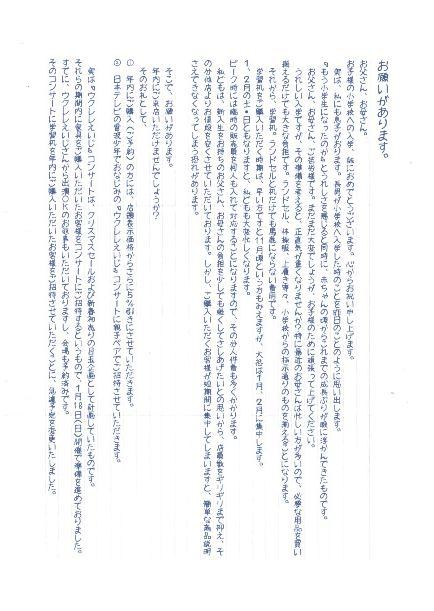 お願いがあります。
お父さん、お母さん。
お子様の小学校への入学、誠におめでとうございます。心からお祝い申し上げます。
実は、私にも息子がおります。長男が小学校へ入学した時のことを昨日のことのように思い出します。
『もう小学生になったのか』とうれしさを感じると同時に、赤ちゃんの頃からこれまでの成長ぶりが頭に浮かんできたものです。
お父さん、お母さん、ご苦労様です。まだまだ大変でしょうが、お子様のために頑張って上げてください。
うれしい入学ですが、その準備を考えると、正直気が重くなりませんか?特に最近のお母さんは忙しい方が多いので、必要な用品を買い
揃えるだけでも大きな負担です。ランドセル、体操服、上履き等々、小学校からの指示通りのものを揃えることになります。
それから、学習机。ランドセルと机だけでも馬鹿にならない費用です。
学習机をご購入いただく時期は、早い方ですと11月頃という方もみえますが、大部は1月、2月に集中します。
1、2月の土・日ともなりますと、私どもも大変忙しくなります。
ピーク時には臨時の販売員を何人も入れて対応することになりますので、その分人件費も多くかかります。
私どもは、新入生をお持ちのお父さん、お母さんの負担を少しでも軽くしてさしあげたいとの思いから、店員数をギリギリまで抑え、そ
の分他店よりお値段を安くさせていただいております。しかし、ご購入いただくお客様が短期間に集中してしまいますと、簡単な商品説明
さえできなくなってしまう恐れがあります。
そこで、お願いがあります。
年内にご来店いただけませんでしょうか?
そのお礼として、
① 年内にご購入(ご予約)の方には、店頭表示価格からさらに5%引きにさせていただきます。
② 日本テレビの音楽少年でおなじみの『ウクレレえいじ』コンサートに親子ペアでご招待させていただきます。
実は『ウクレレえいじ』コンサートは、クリスマスセールおよび新春初売りの目玉企画として計画していたものです。
それらの期間内に家具をご購入いただいたお客様をコンサートにご招待するというもので、1月18日(日)開催で準備を進めておりました。
すでに、ウクレレえいじさんから出演OKのお返事もいただいておりますし、会場も予約済みです。
そのコンサートに学習机を年内にご購入いただいたお客様をご招待させていただくことに、急遽予定を変更いたしました。